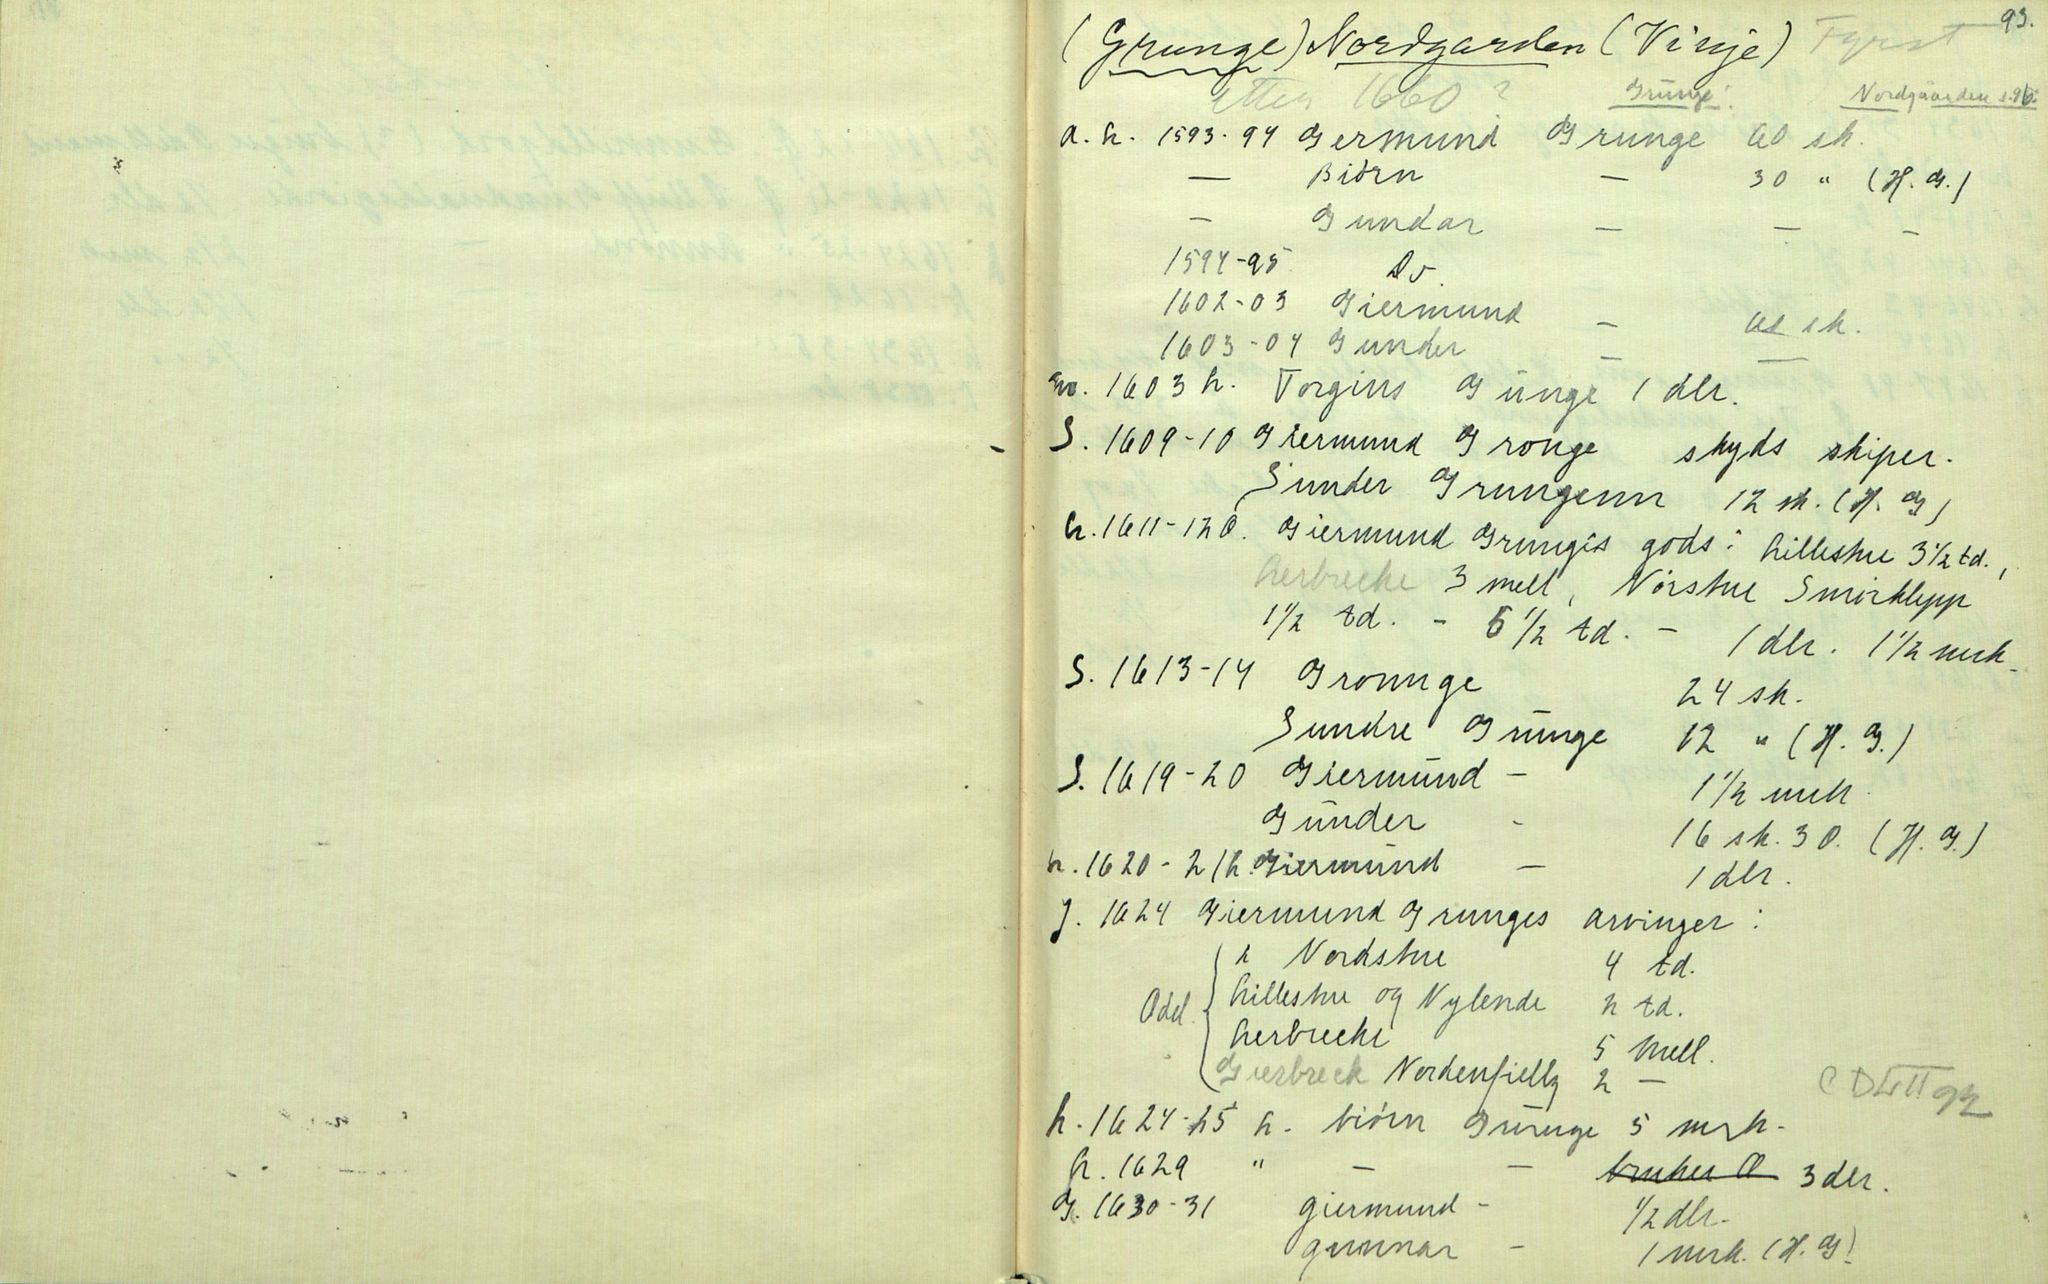 93.
(Grunge) Nordgarden (Vinje) Fyrst
etter 1660?
Grunge: Nordgaarden s. 96:
a. h. 1593-94 Germund Grunge 60 sk.
— Biörn — 30 " (H. G.)
— Gundar — — —
1594-95 Do.
1602-03 Giermund — sk.
1603-04 Gunder — —
1603 h. Torgius Gunge 1 dlr.
S. 1609-10 Giermund Gronge skyds skiper.
Gunder Grungenn 12 sk. (H. G)
h. 1611-12 O. Giermund Grungis gods: Lillestue 3 1/2 td.,
Lerbrecke 3 mell, Nørstue Smørklepp
1 1/2 td. - 5 1/2 td. - 1 dlr. 1 1/2 mrk.
S. 1613-14 Gronnge 24 sk.
Gundre Gunge 12 " (H. G.)
S. 1619-20 Giermund - 1 1/2 mrk.
Gunder - 16 sk. 3 O. (H. G.)
h. 1620-21 h. Giermund — 1 dlr.
J. 1624 Giermund Grunges arvinger:
i Nordstue 4 td.
Lillestue og Nylende 2 td.
Odel. Lerbrecke 5 mell.
Gierbreck Nordenfielly 2 —
h. 1624-25 h. biörn Grunge 5 mrk.
h. 1629 " — — bruker Ø 3 dlr.
G. 1630-31 giermund - 1/2 dlr.
gunnar - 1 mrk. (H. G)